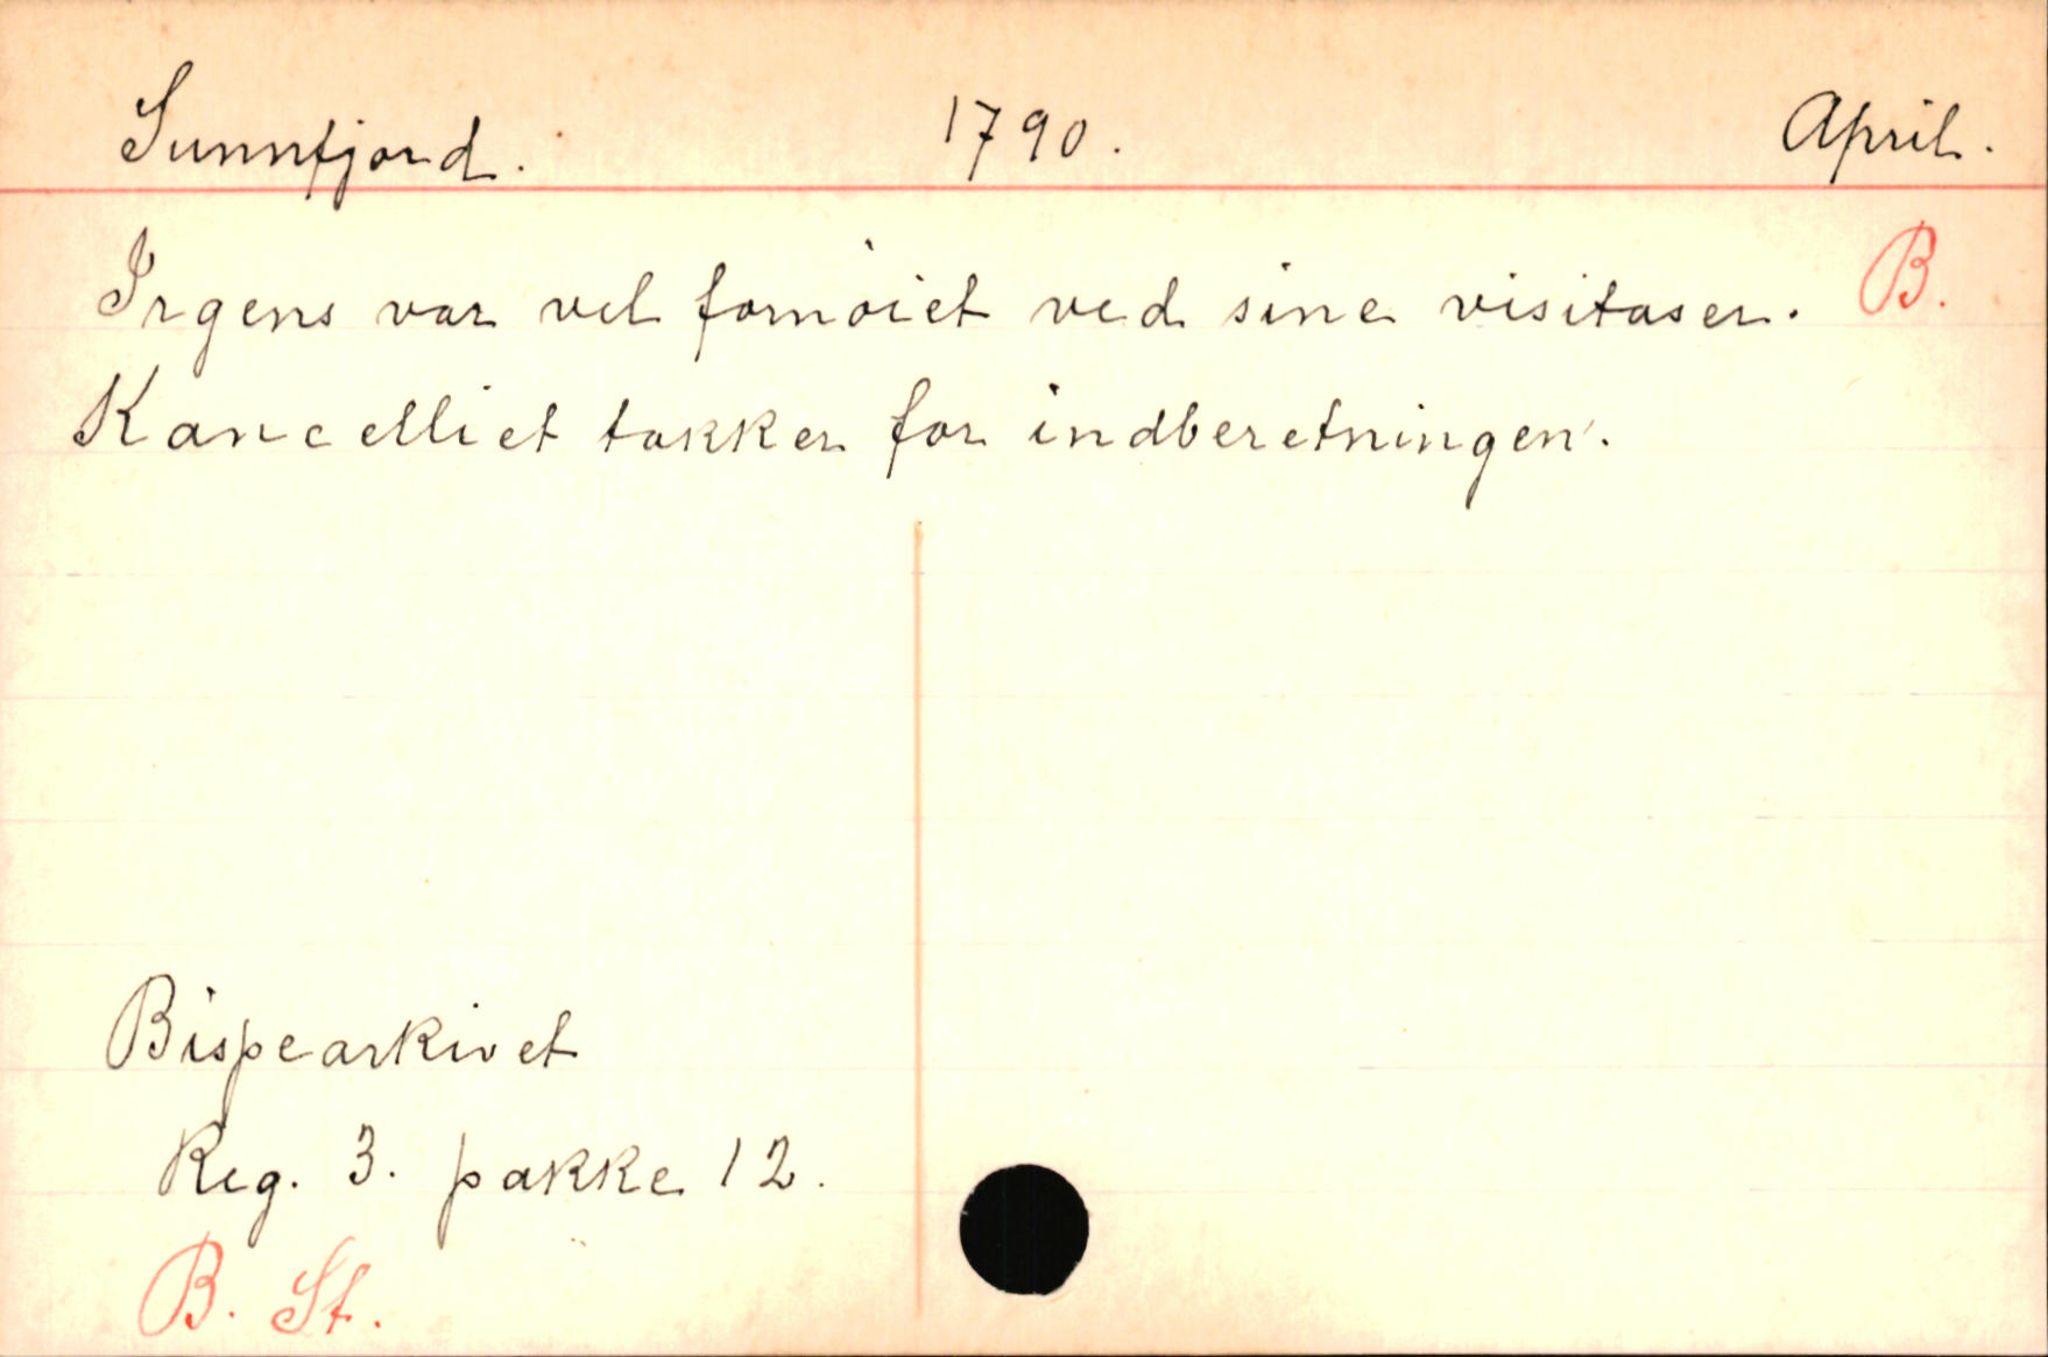 Sunnfjord. 1790. April.
Irgens var vel fornøiet ved sine visitaser. B.
Kancelliet takker for indberetningen.
Bispearkivet
Reg. 3. pakke 12.
B. St.